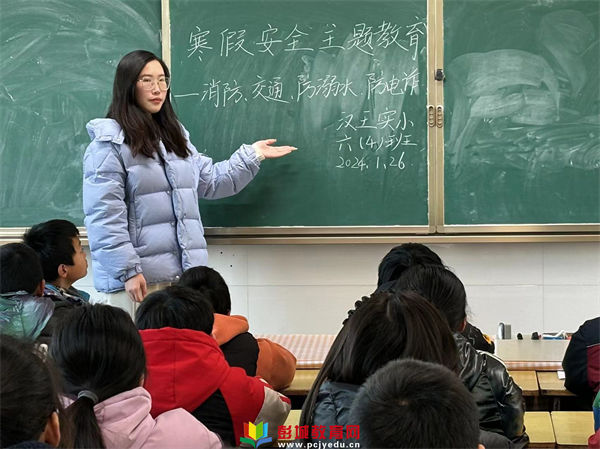 寒假安全主题教育
——消防、交通、防溺水、防电诈
汉王实小
六(4)班
2024.1.26
彭城教育网
www.pcjyedu.cn